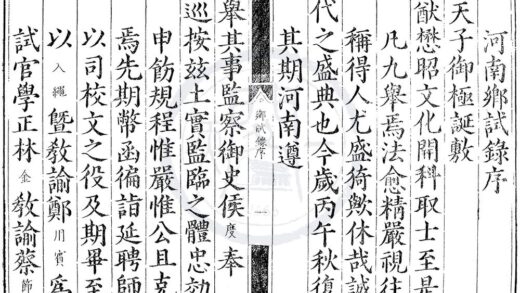 河南鄉試錄序
天子御極誕敷
猷懋昭文化開科取士至是
凡九舉焉法愈精嚴視往
稱得人尤盛猗歟休哉誠
代之盛典也今歲丙午秋復
其期河南遵
鄉試錄序 一
舉其事監察御史侯度奉
巡按茲土實監臨之體忠効
申飭規程惟嚴惟公且克
焉先期幣函徧詣延聘師
以司校文之役及期畢至
以入繩曁敎諭鄭川賓爲
試官學正林金敎諭蔡師